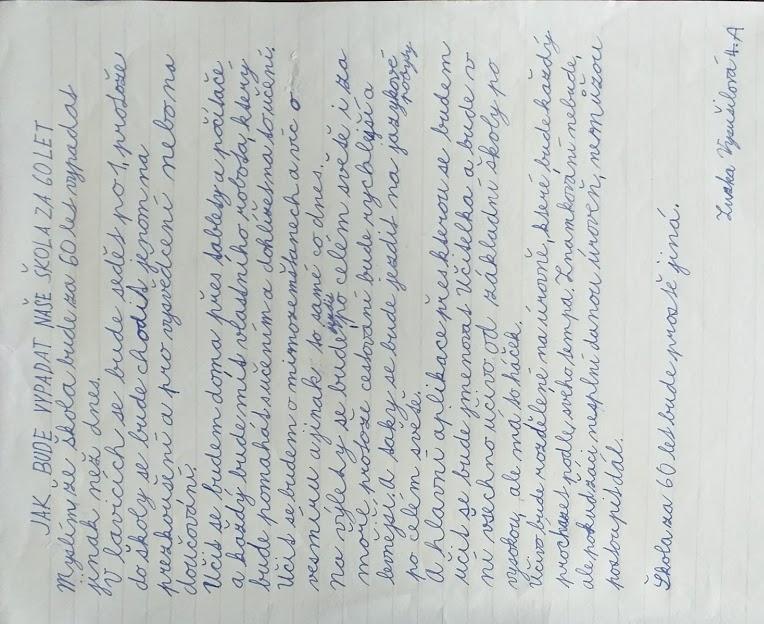 JAK BUDE VYPADAT NAŠE ŠKOLA ZA 60 LET
Myslím že škola bude za 60 let vypadat
jinak než dnes.
V lavicích se bude sedět po 1, protože
do školy se bude chodit jenom na
přezkoušení a pro vysvědčení nebo na
doučování.
Učit se budem doma přes tablety a počítače
a každý bude mít vlastního robota, který
bude pomáhat s učením a dohlížet na to učení.
Učit se budem o mimozemšťanech a víc o
vesmíru a jinak to samé co dnes.
Na výlety se bude jezdit po celém světě i za
moře protože cestování bude rychlejší a
levnější a taky se bude jezdit na jazykové pobyty
po celém světě.
A hlavní aplikace přes kterou se budem
učit se bude jmenovat Učitelka a bude v
ní všechno učivo od základní školy po
vysokou, ale má to háček.
Učivo bude rozdělené na úrovně, které bude každý
procházet podle svého tempa. Známkování nebude,
ale pokud žáci nesplní danou úroveň, nemůžou
postoupit dál.
Škola za 60 let bude prostě jiná.
4.A